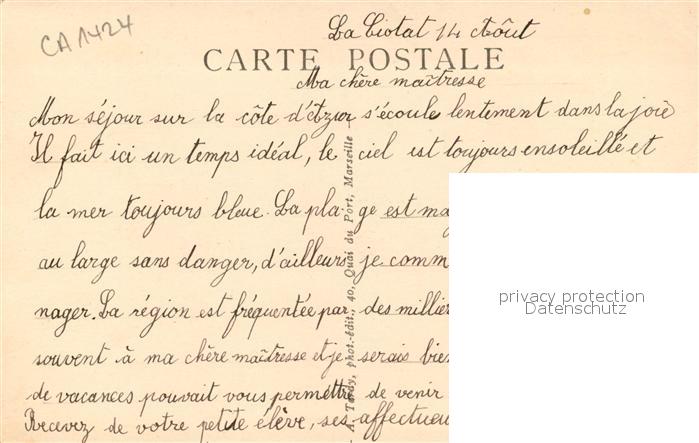 CA1424
La Ciotat 14 Août
CARTE POSTALE
Ma chère maîtresse
Mon séjour sur la côte d'Azur s'écoule lentement dans la joie
Il fait ici un temps idéal, le ciel est toujours ensoleillé et
la mer toujours bleue. La plage est ma
au large sans danger, d'ailleurs je comm
nager. La région est fréquentée par des millier
souvent à ma chère maîtresse et je serais bien
de vacances pouvait vous permettre de venir
Recevez de votre petite élève, ses affectueu
A. Tardy, phot.-édit., 40, Quai du Port, Marseille
privacy protection
Datenschutz